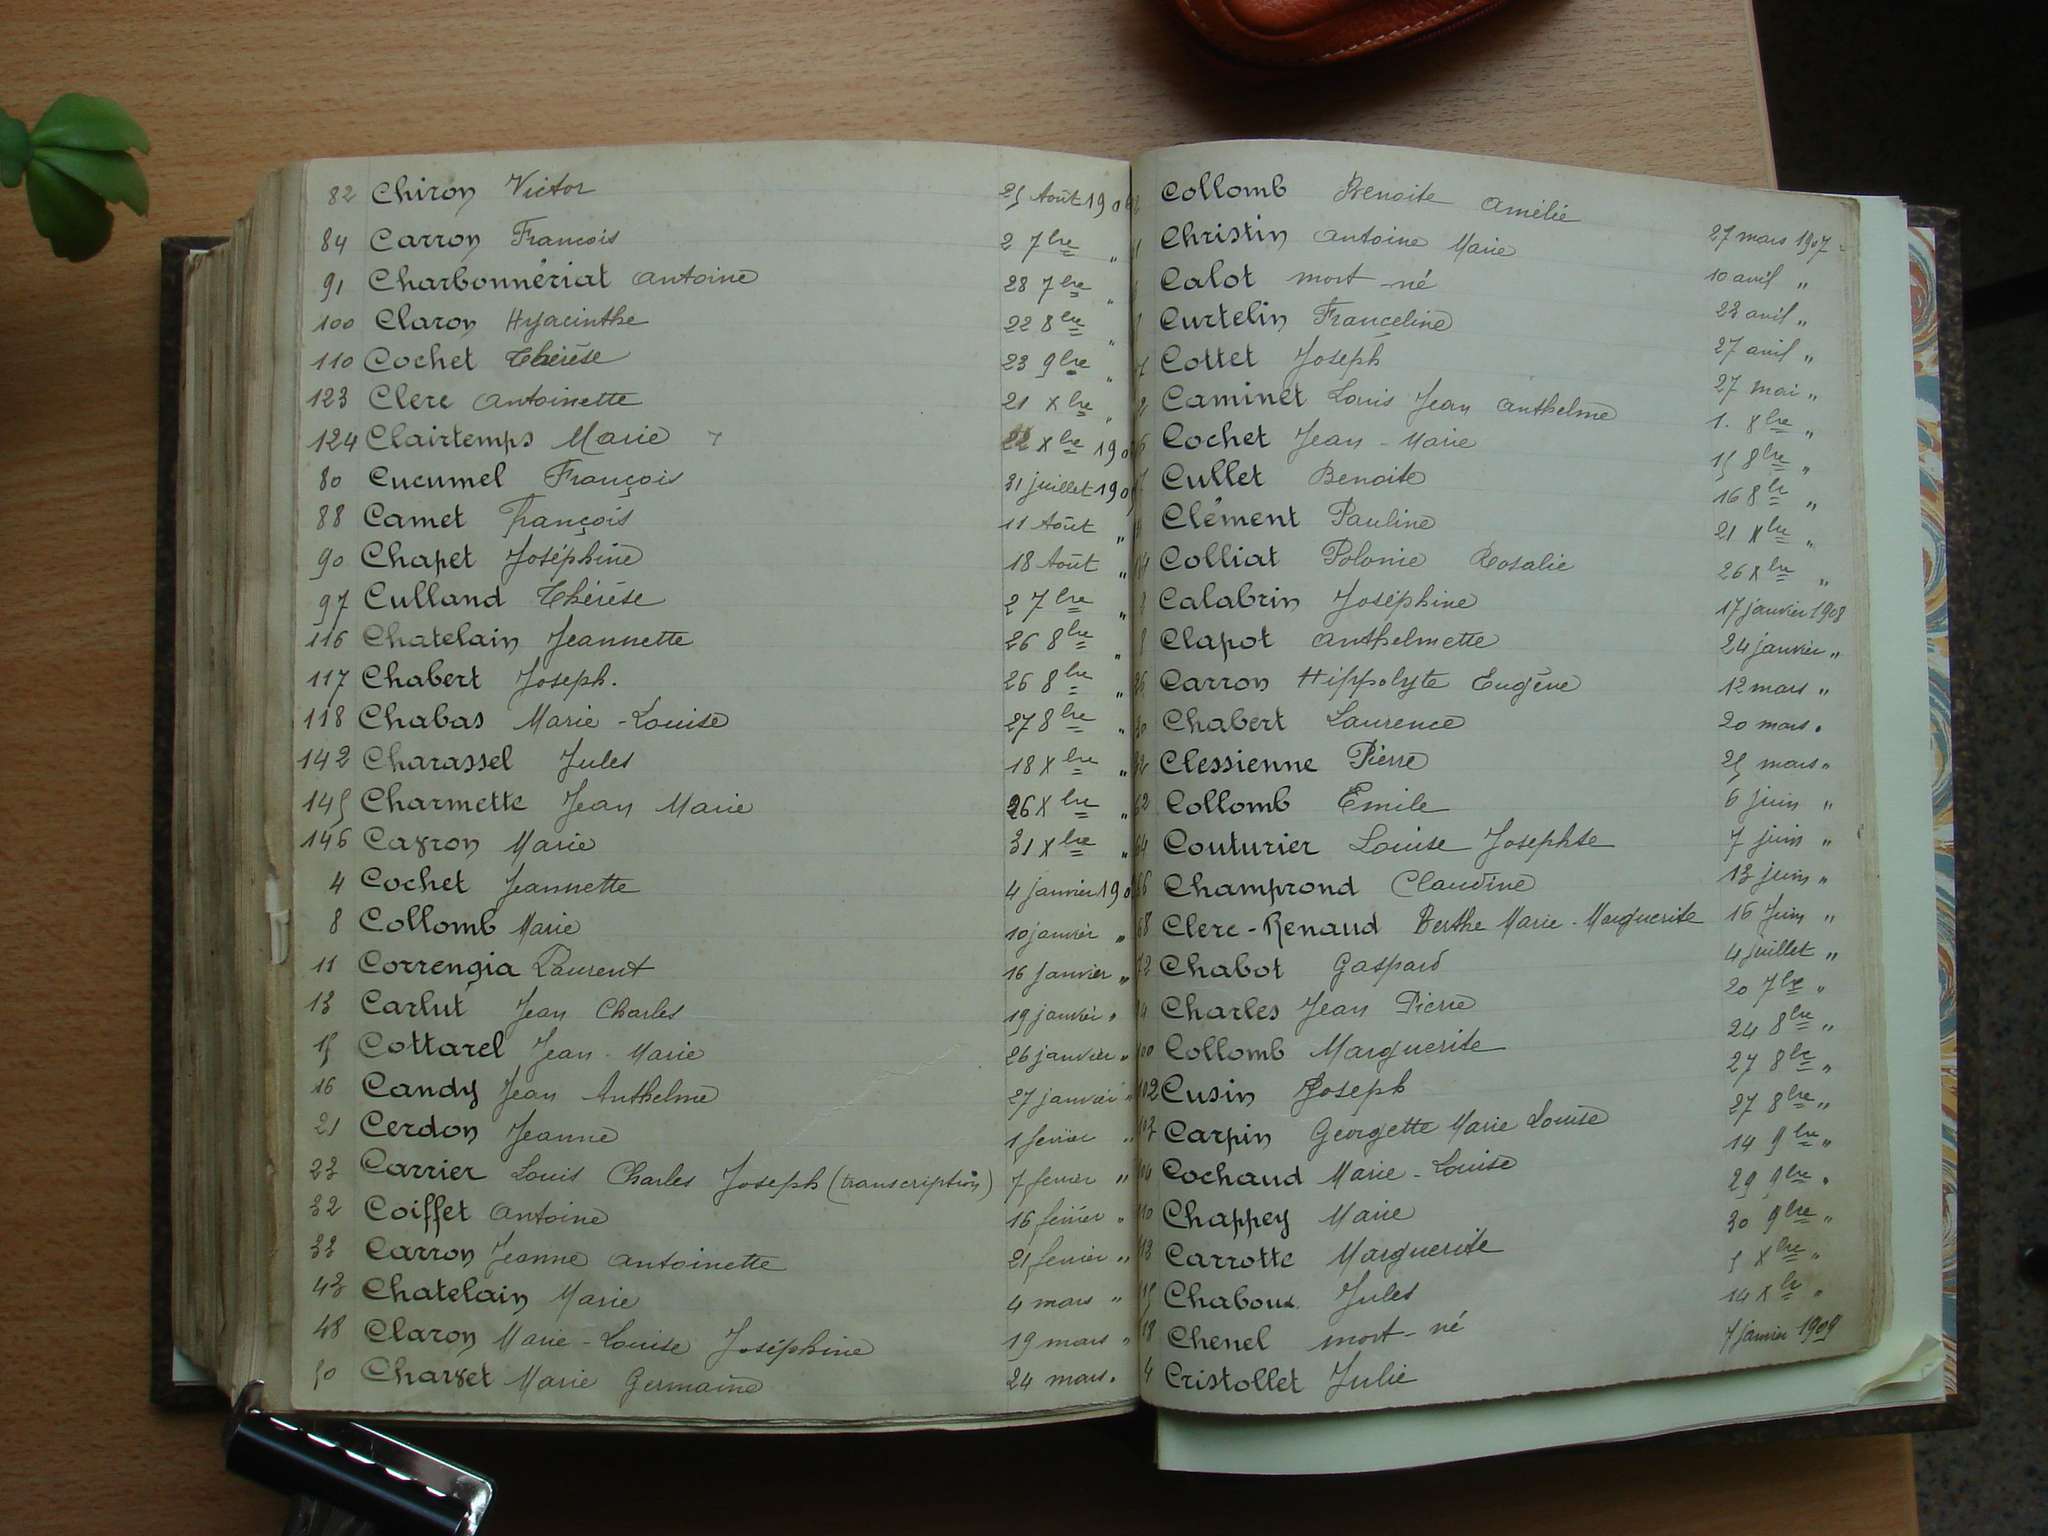 82 Chiron Victor 25 Août 190
84 Carron Francois 2 7bre "
91 Charbonnériat Antoine 28 7bre "
100 Claron Hyacinthe 22 8bre "
110 Cochet Thérèse 23 9bre "
123 Clerc Antoinette 21 Xbre "
124 Clairtemps Marie 22 Xbre 190
80 Cucumel François 31 juillet 190
88 Camet François 11 Août "
90 Chapet Joséphine 18 Août "
97 Culland Thérèse 2 7bre "
116 Chatelain Jeannette 26 8bre "
117 Chabert Joseph. 26 8bre "
118 Chabas Marie-Louise 27 8bre "
142 Charassel Jules 18 Xbre "
145 Charmette Jean Marie 26 Xbre "
146 Cayron Marie 31 Xbre "
4 Cochet Jeannette 4 janvier 190
8 Collomb Marie 10 janvier "
11 Correngia Laurent 16 janvier "
13 Carlut Jean Charles 19 janvier "
15 Cottarel Jean-Marie 26 janvier "
16 Candy Jean Anthelme 27 janvier "
21 Cerdon Jeanne 1 fevrier "
23 Carrier Louis Charles Joseph (transcription) 7 fevrier "
32 Coiffet Antoine 16 fevrier "
33 Carron Jeanne Antoinette 21 fevrier "
43 Chatelain Marie 4 mars "
48 Claron Marie-Louise Joséphine 19 mars "
50 Charvet Marie Germaine 24 mars "
Collomb Benoite Amélie 27 mars 1907
Christin Antoine Marie 10 avril "
Calot mort-né 23 avril "
Curtelin Franceline 27 avril "
Cottet Joseph 27 mai "
Caminet Louis Jean Anthelme 1. 8bre "
Cochet Jean-Marie 15 8bre "
Cullet Benoite 16 8bre "
Clément Pauline 21 Xbre "
Colliat Polonie Rosalie 26 Xbre "
Calabrin Joséphine 17 janvier 1908
Clapot Anthelmette 24 janvier "
Carron Hippolyte Eugène 12 mars "
Chabert Laurence 20 mars "
Clessienne Pierre 25 mars "
62 Collomb Emile 6 juin "
64 Couturier Louise Josephte 7 juin "
66 Champrond Claudine 13 juin "
68 Clerc-Renaud Berthe Marie-Marguerite 16 Juin "
72 Chabot Gaspard 4 juillet "
Charles Jean Pierre 20 7bre "
100 Collomb Marguerite 24 8bre "
102 Cusin Joseph 27 8bre "
Carpin Georgette Marie Louise 27 8bre "
Cochaud Marie-Louise 14 9bre "
110 Chappey Marie 29 9bre "
113 Carrotte Marguerite 30 9bre "
Chaboux Jules 5 Xbre "
Chenel mort-né 14 Xbre "
4 Cristollet Julie 7 janvier 1909